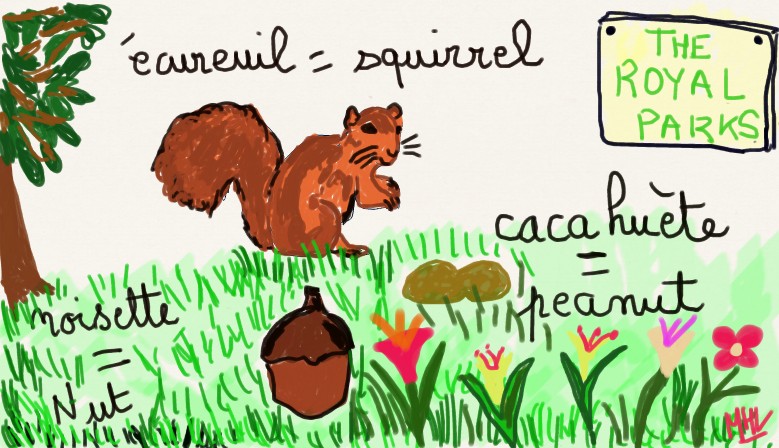 écureuil = squirrel
THE
ROYAL
PARKS
cacahuète
=
peanut
noisette
=
Nut
MHL